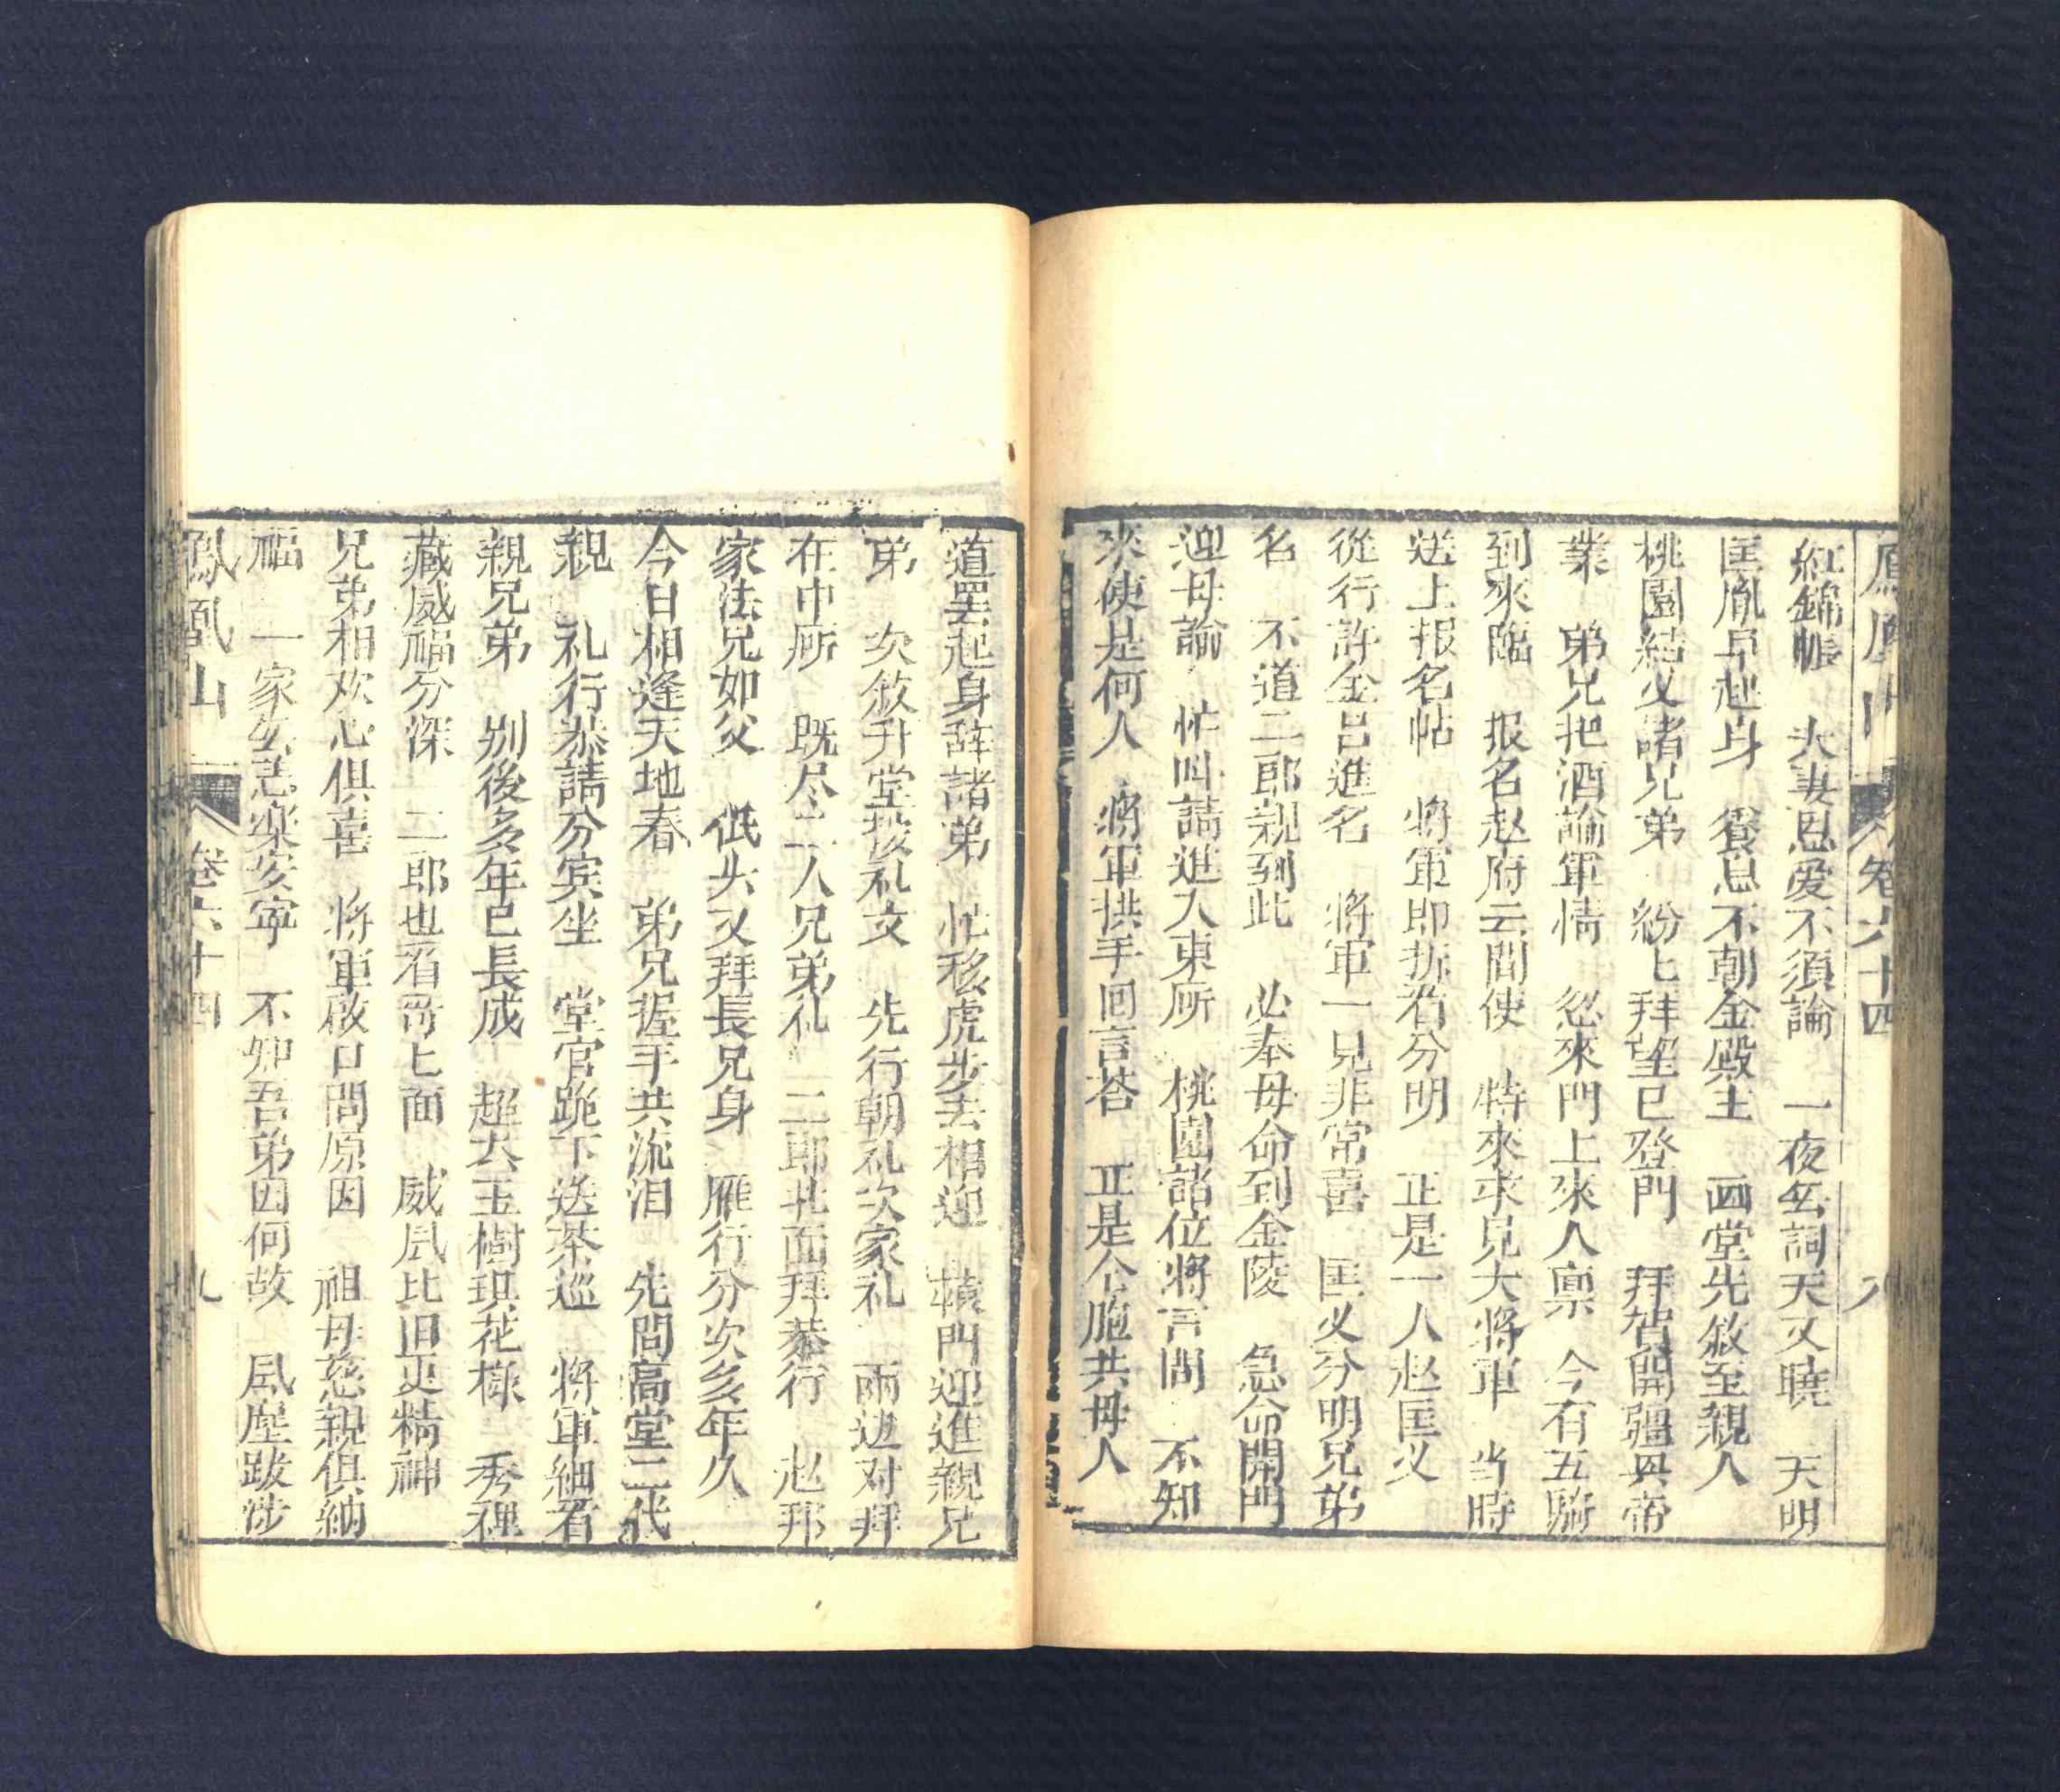 鳳凰山 卷六十四 八
紅錦帳 夫妻恩爱不須論 一夜玄詞天又曉 天明
匡胤早起身 養息不朝金殿主 西堂先敘至親人
桃園結义諸兄弟 紛匕拜望已登門 拜賀開疆興帝
業 弟兄把酒論軍情 忽來門上來人禀 今有五騎
到來臨 报名赵府云間使 特來求見大將軍 当時
送上报名帖 將軍即拆看分明 正是一人赵匡义
從行許金呂進名 將軍一見非常喜 匡义分明兄弟
名 不道二郎親到此 必奉母命到金陵 急命開門
迎母諭 忙叫請進大東所 桃園諸位將言問 不知
來使是何人 將軍拱手回言荅 正是仝胞共母人
道罢起身辞諸弟 忙移虎步去相迎 轅門迎進親兄
弟 次敘升堂接礼文 先行朝礼次家礼 兩边对拜
在中所 既尽二人兄弟礼 二郎北面拜恭行 赵邦
家法兄如父 低头又拜長兄身 雁行分次多年久
今日相逢天地春 弟兄握手共流泪 先問高堂二代
親 礼行恭請分宾坐 堂官跪下送茶巡 將軍細看
親兄弟 别後多年已長成 超去玉樹琪花樣 秀裡
藏威福分深 二郎也看哥匕面 威凨比旧更精神
兄弟相欢心俱喜 將軍啟口問原因 祖母慈親俱納
福 一家么恙樂安寕 不知吾弟因何故 凨塵跋涉
鳳凰山 卷六十四 九